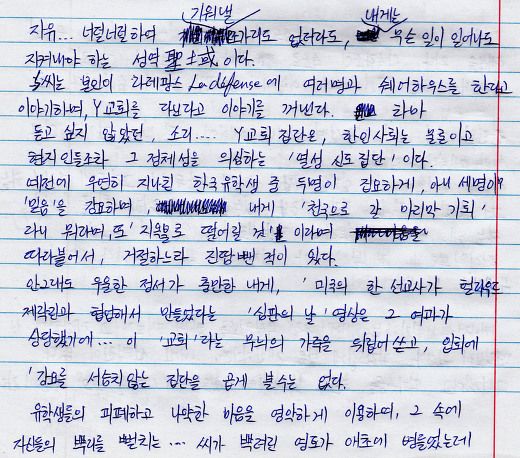 가위낼 내게는
자유... 너덜너덜하여 가리도 없더라도, 무슨 일이 일어나도
지켜내야 하는 성역 聖土或 이다.
씨는 본인이 라데팡스 La défense에 여러명과 쉐어하우스를 한다고
이야기하며, Y교회를 다닌다고 이야기를 꺼낸다. 하아
듣고 싶지 않았던, 소리.... Y교회 집단은, 한인사회는 물론이고
현지인들조차 그 정체성을 의심하는 '열성 신도 집단' 이다.
예전에 우연히 지나친 한국유학생 중 두명이 집요하게, 아니 세명이?
'믿음'을 강요하며, 내게 '천국으로 갈 마지막 기회'
라니 뭐라며, 또 '지옥불로 떨어질 것' 이라며
따라붙어서, 거절하느라 진땀뺀 적이 있다.
안그래도 우울한 정서가 충만한 내게, '미국의 한 선교사가 헐리우드
제작진과 협업해서 만들었다는 '심판의 날' 영상은 그 여파가
상당했기에... 이 '교회'라는 무늬의 가죽을 뒤집어 쓰고, 입회에
'강요를 서슴치 않는 집단을 곱게 볼수는 없다.
유학생들의 피폐하고 나약한 마음을 영악하게 이용하며, 그 속에
자신들의 뿌리를 뻗치는.... 씨가 뿌려린 영토가 애초에 병들었는데